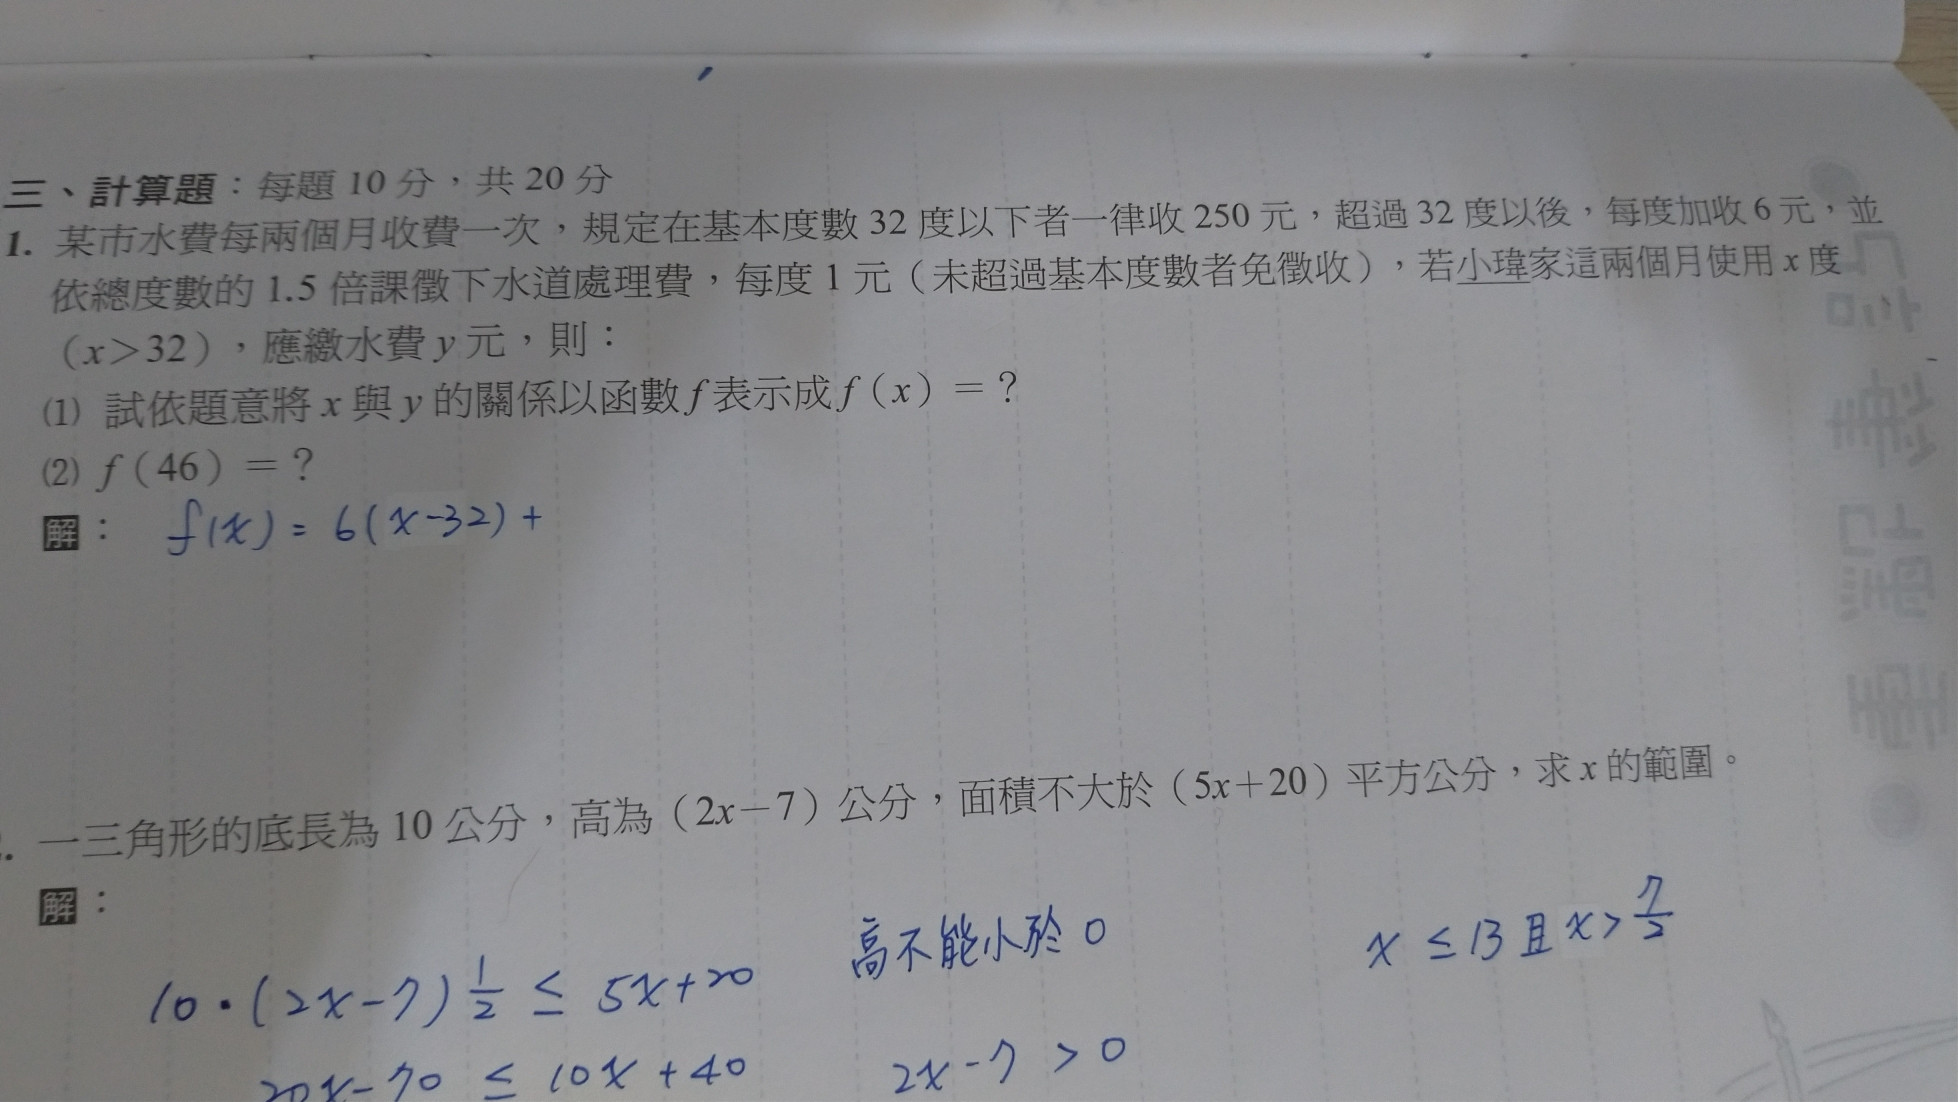 三、計算題：每題 10 分，共 20 分
1. 某市水費每兩個月收費一次，規定在基本度數 32 度以下者一律收 250 元，超過 32 度以後，每度加收 6 元，並
依總度數的 1.5 倍課徵下水道處理費，每度 1 元（未超過基本度數者免徵收），若小瑋家這兩個月使用 x 度
（x＞32），應繳水費 y 元，則：
(1) 試依題意將 x 與 y 的關係以函數 f 表示成 f（x）＝？
(2) f（46）＝？
解： f(x) = 6(x-32)+
. 一三角形的底長為 10 公分，高為（2x－7）公分，面積不大於（5x＋20）平方公分，求 x 的範圍。
解：
高不能小於 0
x ≤ 13 且 x > 7/2
10·(2x-7) 1/2 ≤ 5x+20
20x-70 ≤ 10x+40
2x-7 > 0